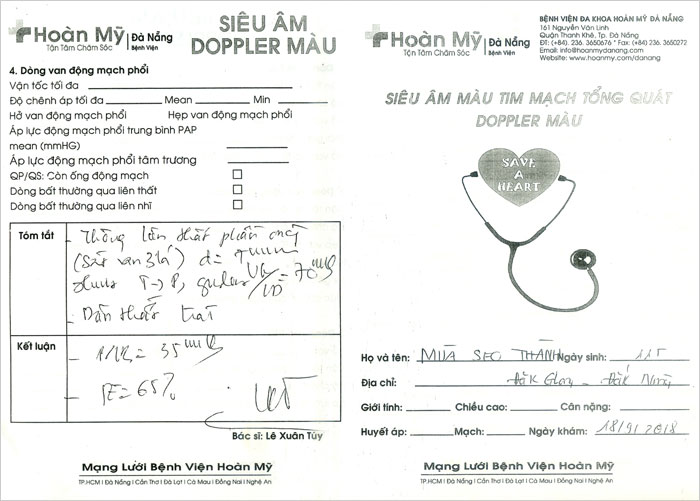 Hoàn Mỹ
Tận Tâm Chăm Sóc
Đà Nẵng
Bệnh Viện
SIÊU ÂM
DOPPLER MÀU
4. Dòng van động mạch phổi
Vận tốc tối đa
Độ chênh áp tối đa Mean Min
Hở van động mạch phổi Hẹp van động mạch phổi
Áp lực động mạch phổi trung bình PAP
mean (mmHG)
Áp lực động mạch phổi tâm trương
QP/QS: Còn ống động mạch
Dòng bất thường qua liên thất
Dòng bất thường qua liên nhĩ
Tóm tắt
- Thông liên thất phần
(Sát van 3 lá) d=
70
- Dãn thất trái
Kết luận
35
- FE = 65%
Bác sĩ: Lê Xuân Túy
Mạng Lưới Bệnh Viện Hoàn Mỹ
TP.HCM I Đà Nẵng I Cần Thơ I Đà Lạt I Cà Mau I Đồng Nai I Nghệ An
Hoàn Mỹ
Tận Tâm Chăm Sóc
Đà Nẵng
Bệnh Viện
BỆNH VIỆN ĐA KHOA HOÀN MỸ ĐÀ NẴNG
161 Nguyễn Văn Linh
Quận Thanh Khê, Tp. Đà Nẵng
ĐT: (+84). 236. 3650676 * Fax: (+84) 236. 3650272
Email: info@hoanmydanang.com
Website: www.hoanmy.com/danang
SIÊU ÂM MÀU TIM MẠCH TỔNG QUÁT
DOPPLER MÀU
SAVE
A
HEART
Họ và tên: MÙA SEO THÀNH Ngày sinh: 11T
Địa chỉ: Đắk Glong - Đắk Nông
Giới tính: Chiều cao: Cân nặng:
Huyết áp: Mạch: Ngày khám: 18/9/2018
Mạng Lưới Bệnh Viện Hoàn Mỹ
TP.HCM I Đà Nẵng I Cần Thơ I Đà Lạt I Cà Mau I Đồng Nai I Nghệ An